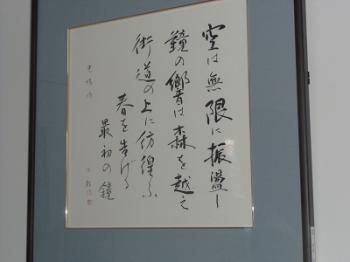 空は無限に振盪し
鐘の響は森を越え
街道の上に彷徨ふ
春を告げる
最初の鐘